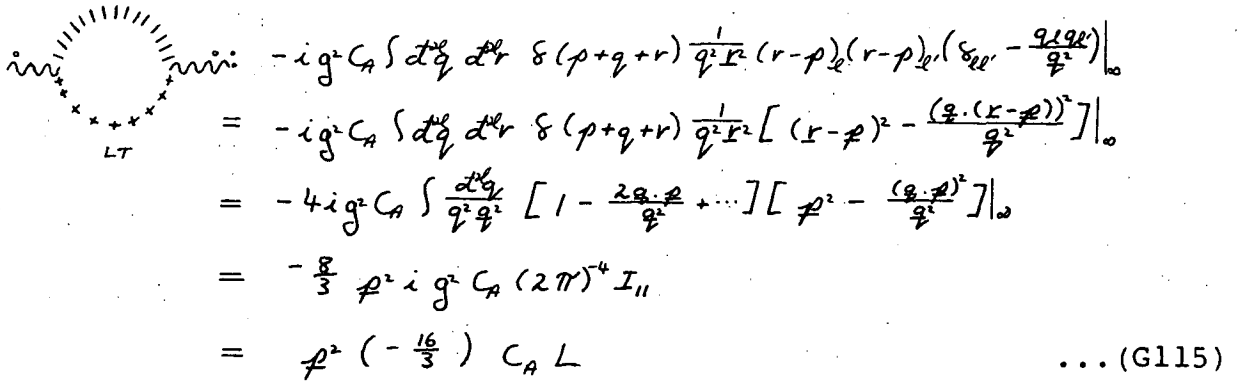 : -ig²C_A ∫đ^{2ℓ}q đ^{2ℓ}r δ(p+q+r) \frac{1}{q² \underline{r}²} (r-p)_ℓ (r-p)_{ℓ'} (δ_{ℓℓ'} - \frac{q_ℓ q_{ℓ'}}{\underline{q}²})|_∞
LT
= -ig²C_A ∫đ^{2ℓ}q đ^{2ℓ}r δ(p+q+r) \frac{1}{q² \underline{r}²} [(\underline{r}-\underline{p})² - \frac{(\underline{q}·(\underline{r}-\underline{p}))²}{\underline{q}²}]|_∞
= -4ig²C_A ∫\frac{đ^{2ℓ}q}{q² \underline{q}²} [1 - \frac{2\underline{q}·\underline{p}}{\underline{q}²} + ···][\underline{p}² - \frac{(\underline{q}·\underline{p})²}{\underline{q}²}]|_∞
= -\frac{8}{3} \underline{p}² i g² C_A (2π)^{-4} I_{11}
= \underline{p}² (-\frac{16}{3}) C_A L ...(G115)